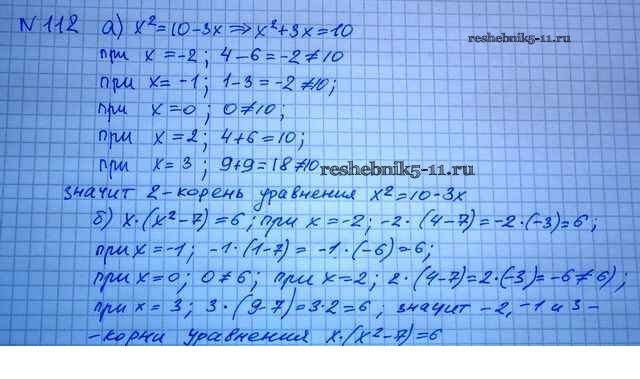 N 112 а) x²=10-3x⇒x²+3x=10
reshebnik5-11.ru
при x=-2; 4-6=-2≠10
при x=-1; 1-3=-2≠10;
при x=0; 0≠10;
при x=2; 4+6=10;
при x=3; 9+9=18≠10
reshebnik5-11.ru
значит 2-корень уравнения x²=10-3x
б) x·(x²-7)=6; при x=-2; -2·(4-7)=-2·(-3)=6;
при x=-1; -1·(1-7)=-1·(-6)=6;
при x=0; 0≠6; при x=2; 2·(4-7)=2·(-3)=-6≠6);
при x=3; 3·(9-7)=3·2=6; значит -2,-1 и 3-
-корни уравнения x·(x²-7)=6